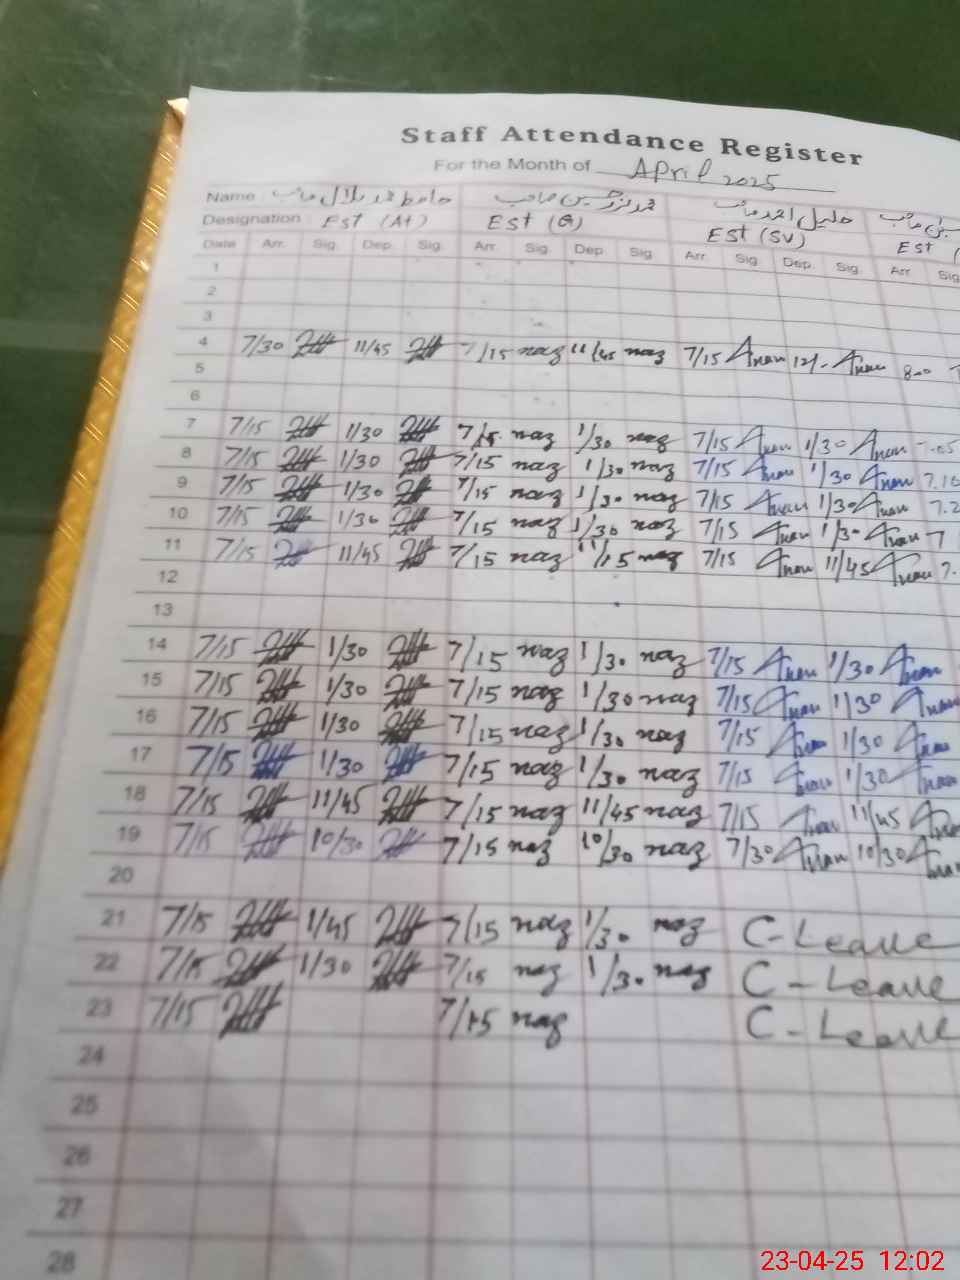 Staff Attendance Register
For the Month of April 2025
Name حافظ محمد بلال صاحب صاحب خلیل احمد صاحب صاحب
Designation Est (At) Est (G) Est (SV) Est (
Date Arr. Sig. Dep. Sig. Arr. Sig. Dep. Sig. Arr. Sig. Dep. Sig. Arr. Sig.
1
2
3
4 7/30 11/45 7/15 naz 11/45 naz 7/15 12/- 8-00
5
6
7 7/15 1/30 7/15 naz 1/30 naz 7/15 1/30 7.05
8 7/15 1/30 7/15 naz 1/30 naz 7/15 1/30 7.10
9 7/15 1/30 7/15 naz 1/30 naz 7/15 1/30 7.2
10 7/15 1/30 7/15 naz 1/30 naz 7/15 1/30 7
11 7/15 11/45 7/15 naz 11/15 naz 7/15 11/45 7.
12
13
14 7/15 1/30 7/15 naz 1/30 naz 7/15 1/30
15 7/15 1/30 7/15 naz 1/30 naz 7/15 1/30
16 7/15 1/30 7/15 naz 1/30 naz 7/15 1/30
17 7/15 1/30 7/15 naz 1/30 naz 7/15 1/30
18 7/15 11/45 7/15 naz 11/45 naz 7/15 11/45
19 7/15 10/30 7/15 naz 10/30 naz 7/30 10/30
20
21 7/15 1/45 7/15 naz 1/30 naz C-Leave
22 7/15 1/30 7/15 naz 1/30 naz C-Leave
23 7/15 7/15 naz C-Leave
24
25
26
27
28
23-04-25 12:02